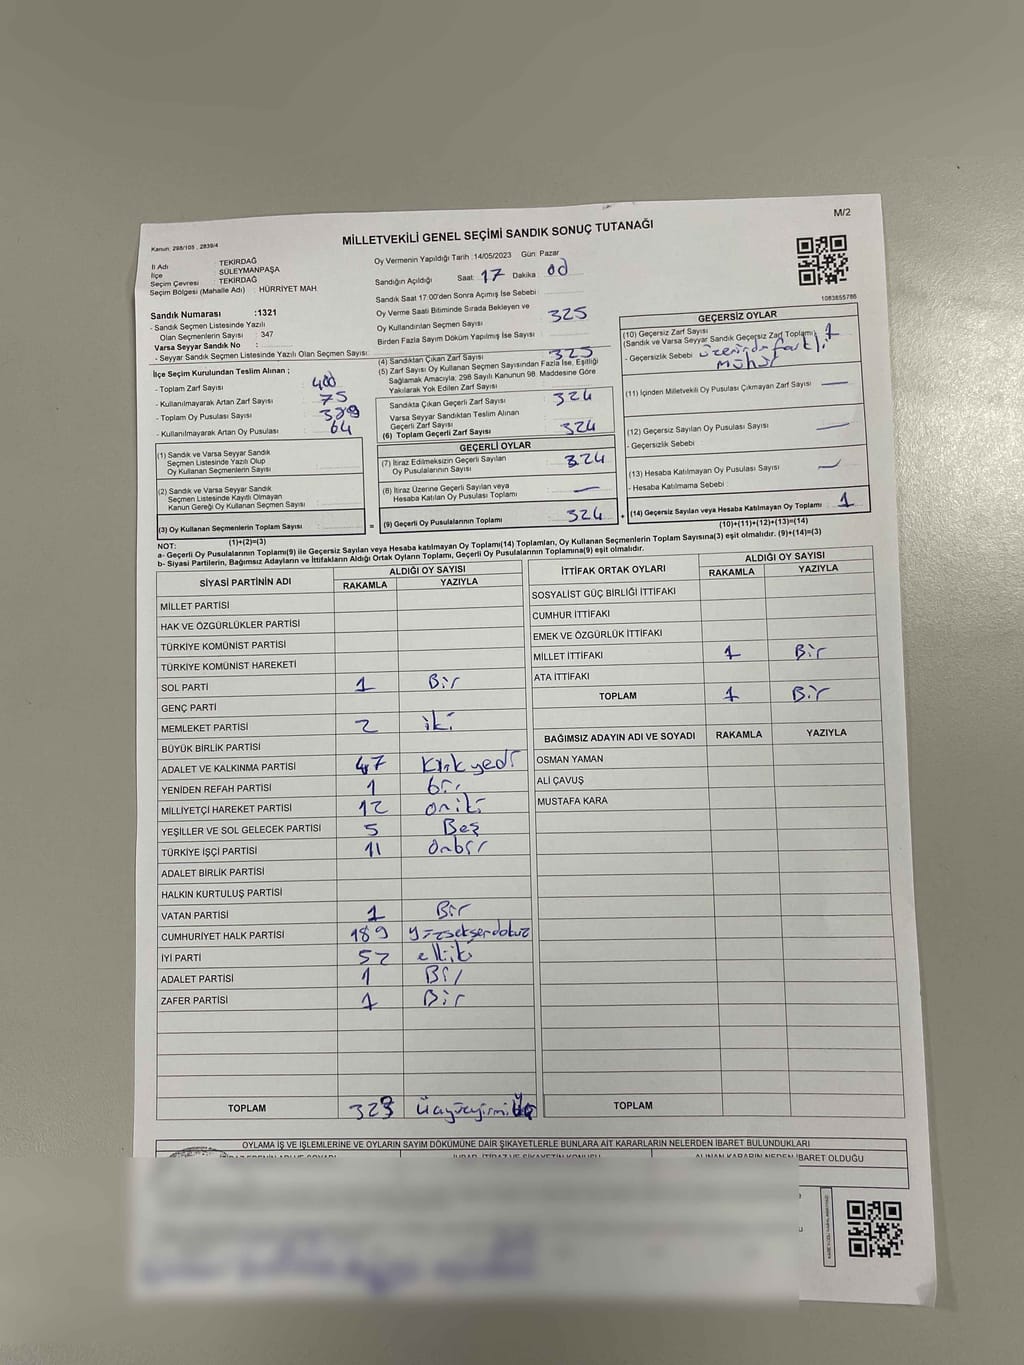 M/2
Kanun: 298/105 , 2839/4
MİLLETVEKİLİ GENEL SEÇİMİ SANDIK SONUÇ TUTANAĞI
İl Adı : TEKİRDAĞ
İlçe : SÜLEYMANPAŞA
Seçim Çevresi : TEKİRDAĞ
Seçim Bölgesi (Mahalle Adı) : HÜRRİYET MAH
Sandık Numarası :1321
- Sandık Seçmen Listesinde Yazılı
Olan Seçmenlerin Sayısı : 347
Varsa Seyyar Sandık No :
- Seyyar Sandık Seçmen Listesinde Yazılı Olan Seçmen Sayısı:
İlçe Seçim Kurulundan Teslim Alınan ;
- Toplam Zarf Sayısı : 400
- Kullanılmayarak Artan Zarf Sayısı : 75
- Toplam Oy Pusulası Sayısı : 389
- Kullanılmayarak Artan Oy Pusulası : 64
(1) Sandık ve Varsa Seyyar Sandık
Seçmen Listesinde Yazılı Olup
Oy Kullanan Seçmenlerin Sayısı :
(2) Sandık ve Varsa Seyyar Sandık
Seçmen Listesinde Kayıtlı Olmayan
Kanun Gereği Oy Kullanan Seçmen Sayısı :
(3) Oy Kullanan Seçmenlerin Toplam Sayısı :
(1)+(2)=(3)
Oy Vermenin Yapıldığı Tarih :14/05/2023 Gün: Pazar
Sandığın Açıldığı Saat: 17 Dakika 00
Sandık Saat 17:00'den Sonra Açılmış İse Sebebi :
Oy Verme Saati Bitiminde Sırada Bekleyen ve
Oy Kullandırılan Seçmen Sayısı : 325
Birden Fazla Sayım Döküm Yapılmış İse Sayısı :
(4) Sandıktan Çıkan Zarf Sayısı : 325
(5) Zarf Sayısı Oy Kullanan Seçmen Sayısından Fazla İse, Eşitliği
Sağlamak Amacıyla, 298 Sayılı Kanunun 98. Maddesine Göre
Yakılarak Yok Edilen Zarf Sayısı :
Sandıkta Çıkan Geçerli Zarf Sayısı : 324
Varsa Seyyar Sandıktan Teslim Alınan
Geçerli Zarf Sayısı :
(6) Toplam Geçerli Zarf Sayısı : 324
GEÇERLİ OYLAR
(7) İtiraz Edilmeksizin Geçerli Sayılan
Oy Pusulalarının Sayısı : 324
(8) İtiraz Üzerine Geçerli Sayılan veya
Hesaba Katılan Oy Pusulası Toplamı : —
= (9) Geçerli Oy Pusulalarının Toplamı : 324 +
1083855786
GEÇERSİZ OYLAR
(10) Geçersiz Zarf Sayısı
(Sandık ve Varsa Seyyar Sandık Geçersiz Zarf Toplamı) : 1
- Geçersizlik Sebebi : üzerinde farklı
mühür
(11) İçinden Milletvekili Oy Pusulası Çıkmayan Zarf Sayısı : —
(12) Geçersiz Sayılan Oy Pusulası Sayısı : —
- Geçersizlik Sebebi :
(13) Hesaba Katılmayan Oy Pusulası Sayısı : —
- Hesaba Katılmama Sebebi :
(14) Geçersiz Sayılan veya Hesaba Katılmayan Oy Toplamı : 1
(10)+(11)+(12)+(13)=(14)
NOT:
a- Geçerli Oy Pusulalarının Toplamı(9) ile Geçersiz Sayılan veya Hesaba katılmayan Oy Toplamı(14) Toplamları, Oy Kullanan Seçmenlerin Toplam Sayısına(3) eşit olmalıdır. (9)+(14)=(3)
b- Siyasi Partilerin, Bağımsız Adayların ve İttifakların Aldığı Ortak Oyların Toplamı, Geçerli Oy Pusulalarının Toplamına(9) eşit olmalıdır.
SİYASİ PARTİNİN ADI ALDIĞI OY SAYISI
RAKAMLA YAZIYLA
MİLLET PARTİSİ
HAK VE ÖZGÜRLÜKLER PARTİSİ
TÜRKİYE KOMÜNİST PARTİSİ
TÜRKİYE KOMÜNİST HAREKETİ
SOL PARTİ 1 Bir
GENÇ PARTİ
MEMLEKET PARTİSİ 2 iki
BÜYÜK BİRLİK PARTİSİ
ADALET VE KALKINMA PARTİSİ 47 Kırkyedi
YENİDEN REFAH PARTİSİ 1 bir
MİLLİYETÇİ HAREKET PARTİSİ 12 oniki
YEŞİLLER VE SOL GELECEK PARTİSİ 5 Beş
TÜRKİYE İŞÇİ PARTİSİ 11 onbir
ADALET BİRLİK PARTİSİ
HALKIN KURTULUŞ PARTİSİ
VATAN PARTİSİ 1 Bir
CUMHURİYET HALK PARTİSİ 189 yüzseksendokuz
İYİ PARTİ 52 elliiki
ADALET PARTİSİ 1 Bir
ZAFER PARTİSİ 1 Bir
TOPLAM 323 Üçyüzyirmiüç
İTTİFAK ORTAK OYLARI ALDIĞI OY SAYISI
RAKAMLA YAZIYLA
SOSYALİST GÜÇ BİRLİĞİ İTTİFAKI
CUMHUR İTTİFAKI
EMEK VE ÖZGÜRLÜK İTTİFAKI
MİLLET İTTİFAKI 1 Bir
ATA İTTİFAKI
TOPLAM 1 Bir
BAĞIMSIZ ADAYIN ADI VE SOYADI RAKAMLA YAZIYLA
OSMAN YAMAN
ALİ ÇAVUŞ
MUSTAFA KARA
TOPLAM
OYLAMA İŞ VE İŞLEMLERİNE VE OYLARIN SAYIM DÖKÜMÜNE DAİR ŞİKAYETLERLE BUNLARA AİT KARARLARIN NELERDEN İBARET BULUNDUKLARI
ALINAN KARARIN NEDEN İBARET OLDUĞU